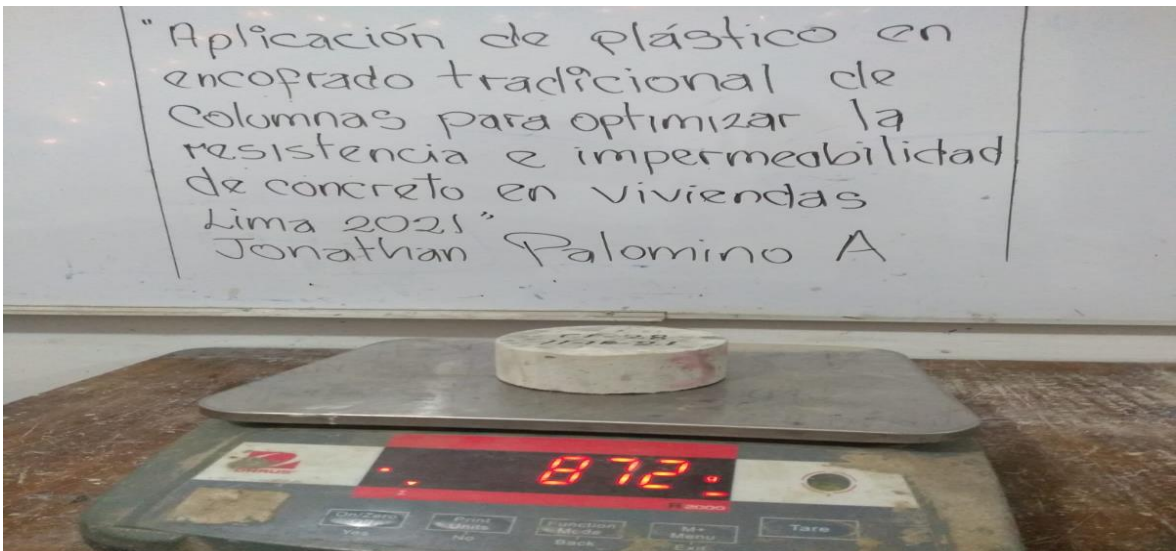 "Aplicación de plástico en
encofrado tradicional de
Columnas para optimizar la
resistencia e impermeabilidad
de concreto en viviendas
Lima 2021"
Jonathan Palomino A
872 g
R 2000
On/Zero Print Function M+ Tare
Yes Units Mode Menu
No Back Exit